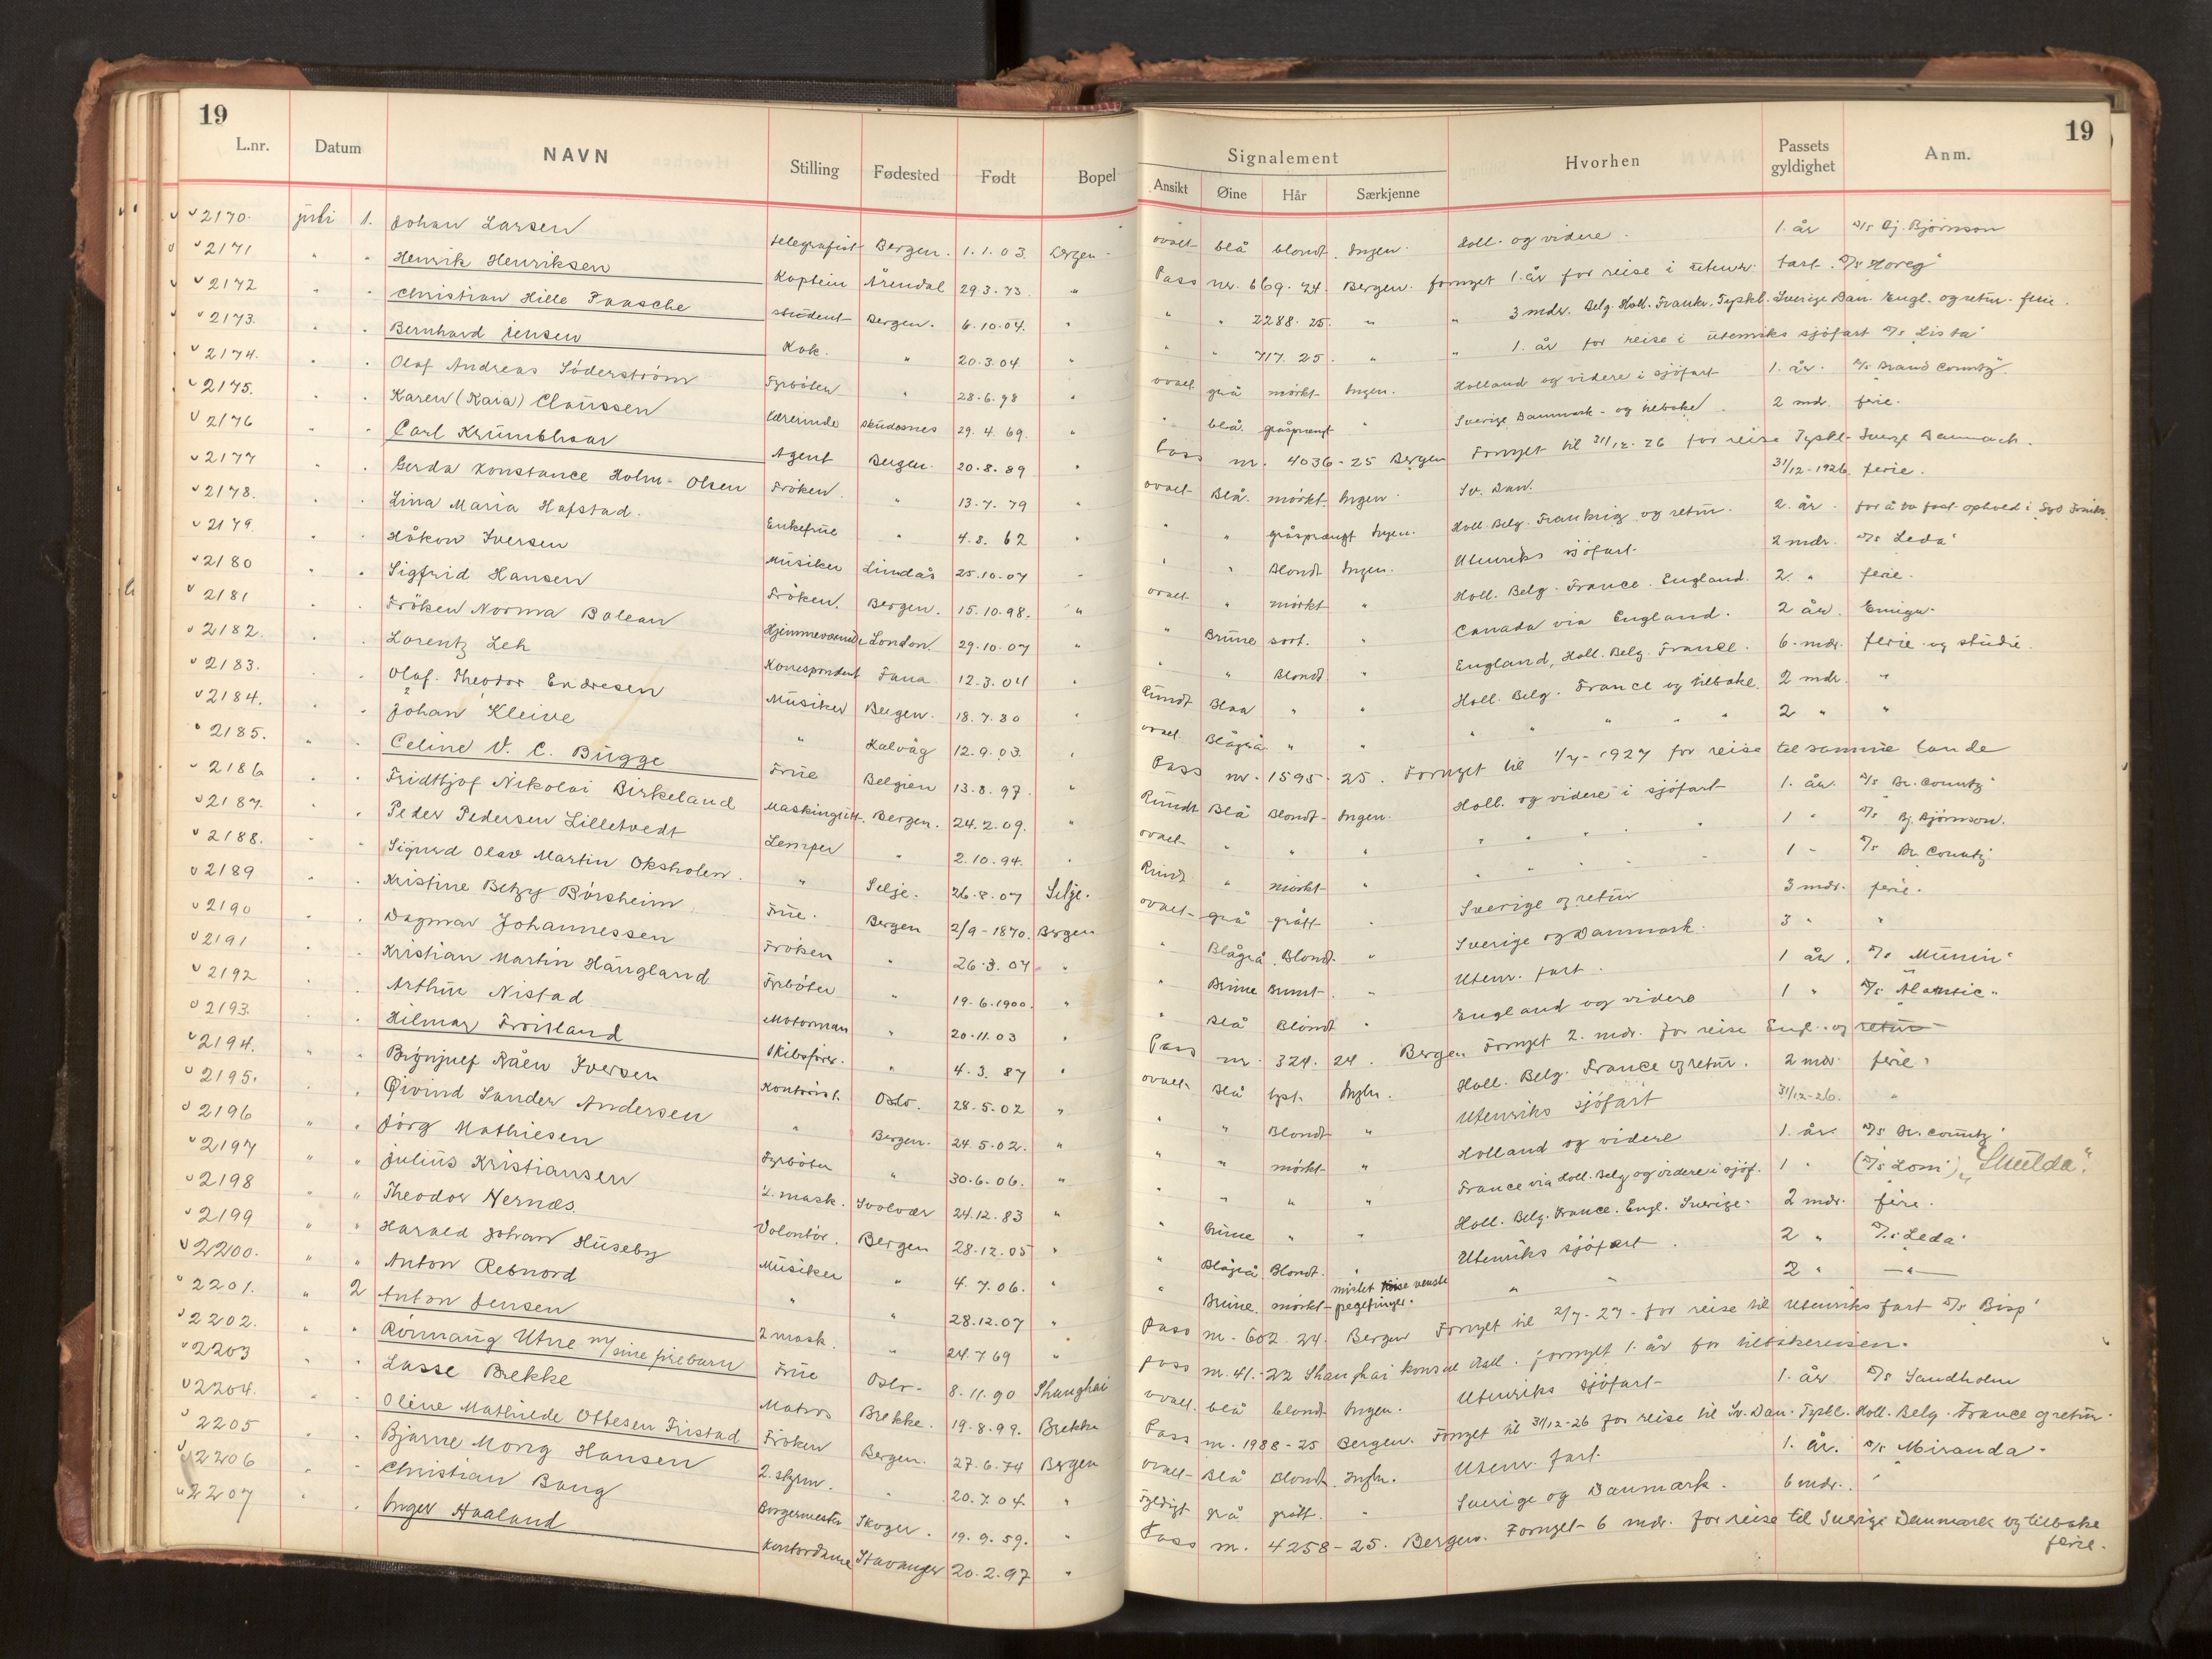 19
19
L.nr. Datum NAVN Stilling Fødested Født Bopel Signalement Hvorhen Passets gyldighet Anm.
Ansikt Øine Hår Særkjenne
2170. juli 1. Johan Larsen telegrafist Bergen. 1.1.03. Bergen ovalt blå blondt. Ingen. Holl. og videre. 1. år D/s Bj. Bjørnson
2171 " " Henrik Henriksen Kaptein Arendal 29.3.73. " Pass nr. 669. 24. Bergen. fornyet 1. år for reise i utenr. fart. D/s Horeg"
2172 " " Christian Hille Paasche student Bergen. 6.10.04. " " " 2288. 25. " " 3 mdr. Belg. Holl. Frankr. Tyskl. Sverige Dan. Engl. og retur. ferie.
2173. " " Bernhard Jensen Kok. " 20.3.04 " " " 717. 25. " " 1. år for reise i utenriks sjöfart D/s Lista"
2174. " " Olaf Andreas Söderström Fyrböter " 28.6.98 " ovalt grå mörkt Ingen. Holland og videre i sjöfart 1. år. D/s Brand County"
2175. " " Karen (Kaia) Claussen Lærerinde Skudesnes 29.4.69. " " blå gråsprængt " Sverige Danmark - og tilbake. 2 md. ferie.
2176 " " Carl Krumbhaar Agent Bergen. 20.8.89 " Pass nr. 4036-25 Bergen Fornyet til 31/12-26 for reise Tyskl. Sverge Danmark.
2177 " " Gerda Konstance Holm-Olsen Fröken. " 13.7.79 " ovalt Blå. mörkt Ingen. Sv. Dan. 31/12-1926. ferie.
2178. " " Lina Maria Hafstad. Enkefrue " 4.8.62 " " " gråsprængt Ingen. Holl. Belg. Frankrig og retur. 2. år. for å ta fast ophold i Syd Frankr.
2179. " " Håkon Iversen Musiker Lindås 25.10.07 " " " Blondt Ingen. Utenriks sjöfart 2 mdr. D/s Leda"
2180 " " Sigfrid Hansen Fröken. Bergen. 15.10.98. " ovalt " mörkt " Holl. Belg. France. England. 2. " ferie.
2181 " " Fröken Norma Balean Hjemmeværende London. 29.10.07 " " Brune sort. " Canada via England. 2 år. Emigr.
2182. " " Lorentz Leh Korrespondent Fana 12.3.04 " " " Blondt " England, Holl. Belg. France. 6. mdr. ferie og studie.
2183. " " Olaf Theodor Endresen Musiker Bergen. 18.7.80 " Rundt Blaa " " Holl. Belg. France og tilbake. 2 mdr. "
2184. " " Johan Kleive " Kalvåg 12.9.03. " ovalt. Blågrå " " " " " " 2 " "
2185. " " Celine V. C. Bugge Frue Belgien 13.8.97. " Pass nr. 1595-25. Fornyet til 1/7-1927 for reise til samme lande
2186 " " Fridttjof Nikolai Birkeland Maskingutt. Bergen. 24.2.09. " Rundt Blå Blondt - Ingen. Holl. og videre i sjöfart 1. år. D/s Br. County"
2187. " " Peder Pedersen Lilletvedt Lemper " 2.10.94. " ovalt " " " " " " " 1 " D/s Bj. Björnson.
2188. " " Sigurd Olav Martin Oksholen. " Selje. 26.8.07 Selje. Rundt " mörkt " " " " 1 " D/s Br. County"
2189 " " Kristine Betzy Börsheim. Frue. Bergen 2/9-1870. Bergen ovalt grå grått " Sverige og retur 3 mdr. ferie.
2190 " " Dagmar Johannessen Fröken " 26.3.07 " " Blågrå Blondt " Sverige og Danmark. 3 " "
2191 " " Kristian Martin Haugland Fyrböter " 19.6.1900. " " Brune Brunt. " Utenr. fart. 1 år. D/s Munin"
2192 " " Arthur Nistad Motorman " 20.11.03 " " Blå Blondt " England og videre 1 " D/s Atlantic"
2193. " " Hilmar Froisland Skibsförer. " 4.3.87 " Pass nr. 324. 24. Bergen Fornyet 2. mdr. for reise Engl. og retur
2194. " " Brynjulf Råen Iversen Kontorist. Oslo. 28.5.02 " ovalt Blå lyst. Ingen. Holl. Belg. France og retur. 2 mdr. ferie.
2195. " " Öivind Sander Andersen " Bergen. 24.5.02. " " " Blondt " Utenriks sjöfart 31/12-26. "
2196 " " Jörg Mathiesen Fyrböter " 30.6.06. " " " mörkt " Holland og videre 1. år. D/s Br. County"
2197 " " Julius Kristiansen 2. mask. Svolvær 24.12.83 " " " " " France via Holl. Belg. og videre i sjöf. 1 " (D/s Loni) "Skulda".
2198 " " Theodor Nernæs. Volontör. Bergen 28.12.05 " " Brune " " Holl. Belg. France. Engl. Sverige. 2 mdr. ferie.
2199 " " Harald Johan Huseby Musiker " 4.7.06. " " Blågrå Blondt. " Utenriks sjöfart. 2 " D/s Leda"
2200. " " Anton Rebnord " " 28.12.07 " " Brune. mörkt mistet venstre pegefinger. " " 2 " "
2201. " 2 Anton Jensen 2 mask. " 24.7.69 " Pass nr. 602. 24. Bergen Fornyet til 2/7-27 - for reise til Utenriks fart D/s Bisp"
2202. " " Rönnaug Utne m/ sine fire barn Frue Oslo. 8.11.90 Shanghai pass nr. 41.-22 Shanghai konsul fornyet 1. år for tilbakereisen.
2203 " " Lasse Brekke Matros Brekke. 19.8.99. Brekke ovalt. blå blondt Ingen. Utenriks sjöfart 1. år D/s Sandholm
2204. " " Oline Mathilde Ottesen Fristad Fröken Bergen. 27.6.74 Bergen Pass nr. 1988-25 Bergen. Fornyet til 31/12-26 for reise til Sv. Dan. Tyskl. Holl. Belg. France og retur.
2205 " " Bjarne Mong Hansen 2. styrm. " 20.7.04. " ovalt Blå Blondt. Ingen. Utenr. fart. 1. år. D/s Miranda"
2206 " " Christian Bang Borgermester Skoger. 19.9.59. " Fyldigt grå grått. " Sverige og Danmark. 6 mdr. "
2207 " " Inger Haaland Kontordame Stavanger 20.2.97 " Pass nr. 4258-25. Bergen. Fornyet 6 mdr. for reise til Sverige Danmark og tilbake
ferie.